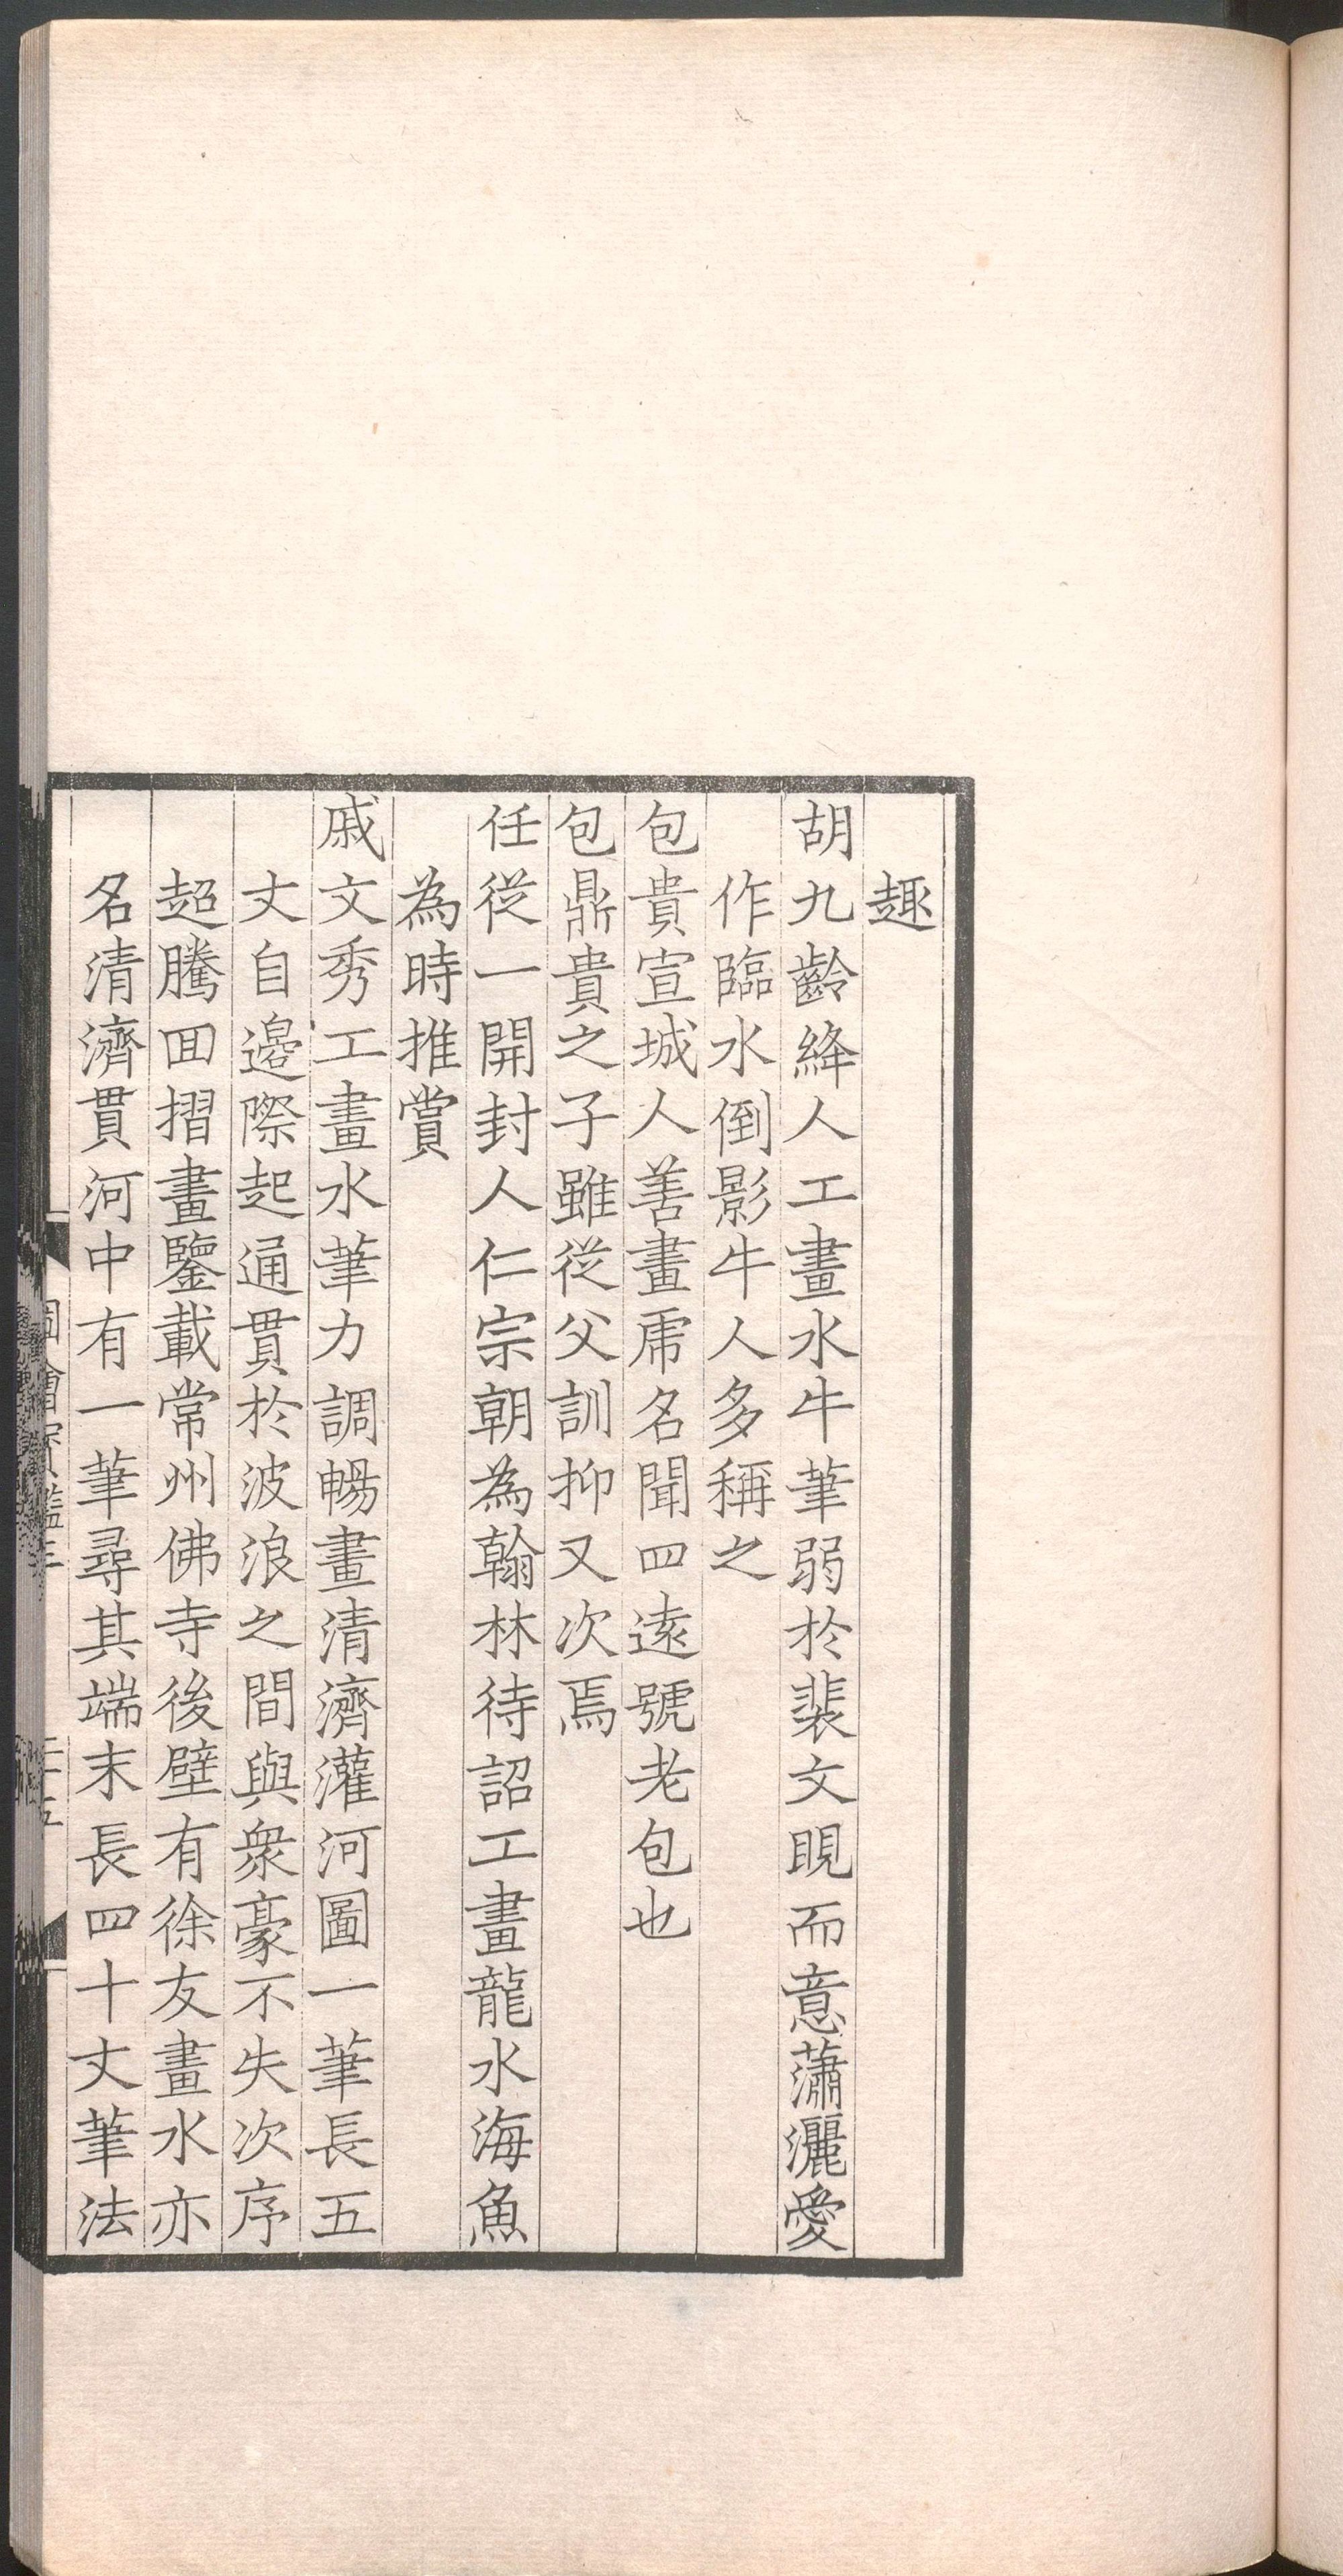 趣
胡九齡絳人工畫水牛筆弱於裴文睍而意蕭灑愛
作臨水倒影牛人多稱之
包貴宣城人善畫虎名聞四遠號老包也
包鼎貴之子雖從父訓抑又次焉
任從一開封人仁宗朝為翰林待詔工畫龍水海魚
為時推賞
戚文秀工畫水筆力調暢畫清濟灌河圖一筆長五
丈自邉際起通貫於波浪之間與衆豪不失次序
超騰囬摺畫鑒載常州佛寺後壁有徐友畫水亦
名清濟貫河中有一筆尋其端末長四十丈筆法